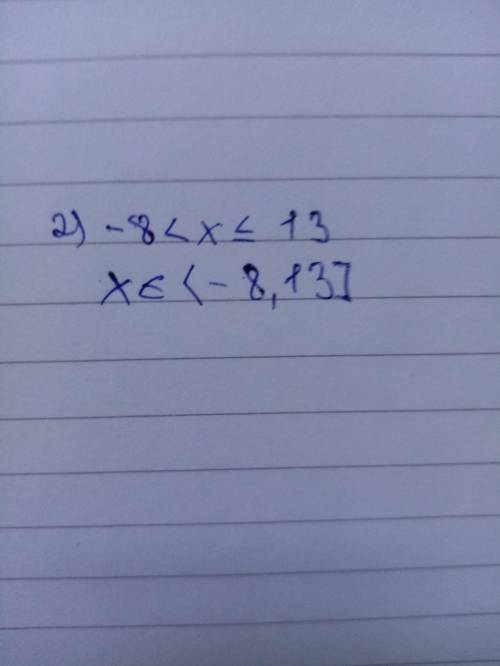 2) -8 < x ≤ 13
x ∈ ⟨-8, 13]